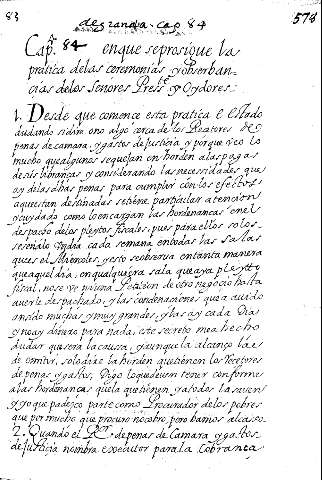 83 de granda. cap 84 578
Cap.º 84 en que se prosigue la
pratica de las ceremonias y observan-
cias de los Señores Press.te y Oydores.
1. Desde que comence esta pratica è estado
dudando si diria ono algo cerca de los Receptores de
penas de camara, y gastos de Justicia y porque veo lo
mucho que algunos se quejan en horden a las pagas
de sus libranças, y considerando las necesidades que
ay de las dhas penas para cumplir con los efectos
a que estan destinadas se tiene particular atencion
y cuydado como lo encargan las hordenanzas en el
despacho de los pleytos fiscales, pues para ellos solos
señalo un dia cada semana en todas las salas
que es el Miercoles, y esto se observa en tanta manera
que aquel dia, en qualquiera sala que aya pleyto
fiscal, no se ve ni una Peticion de otro negocio hasta
averle despachado, y las condenaciones que a avido
an sido muchas, y muy grandes, y las ay cada dia
y no ay dinero para nada, este secreto me a hecho
dudar que sera la causa, y aunque la alcanço la è
de omitir, solo dare la horden que tienen los Recetores
de penas y gastos, Digo lo que deven tener conforme
a las hordenanzas que la que tienen, ya todos la saven
y yo que padezco parte como Procurador de los pobres
que por mucho que procuro no cobro, pero bamos al caso.
2. Quando el R.or de penas de Camara y gastos
de Justicia nombra executor para la cobranza